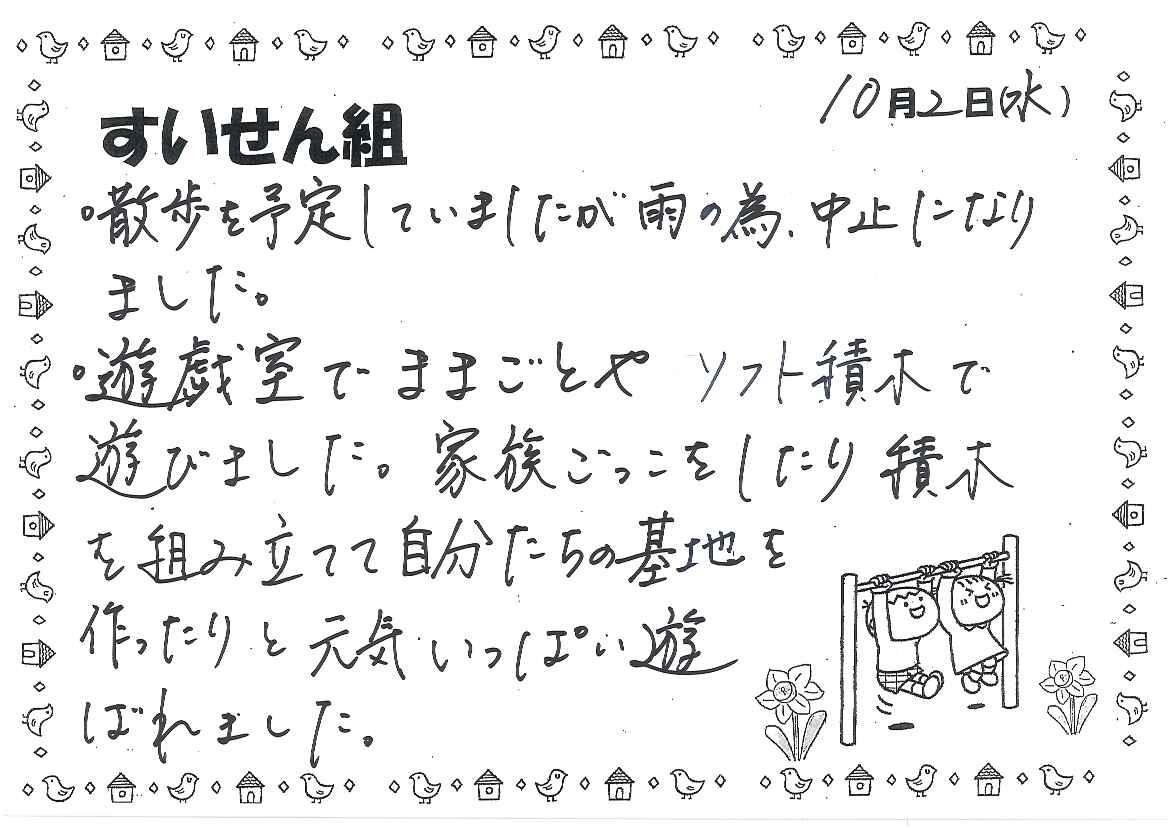 10月2日(水)
すいせん組
。散歩を予定していましたが雨の為、中止になり
ました。
。遊戯室でままごとや ソフト積木で
遊びました。家族ごっこをしたり積木
を組み立てて自分たちの基地を
作ったりと元気いっぱい遊
ばれました。